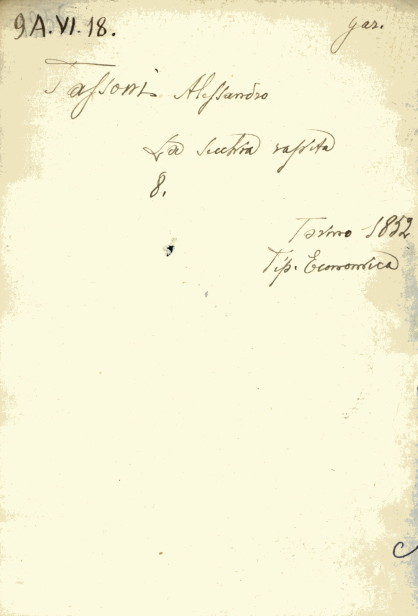 9A.VI.18.
gar.
Tassoni Alessandro
La secchia rapita
8.
Torino 1852
Tip. Economica